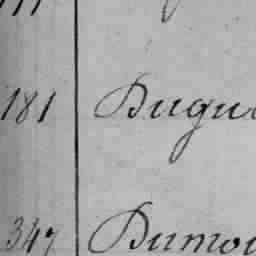 181 Dugu
347 Dumo